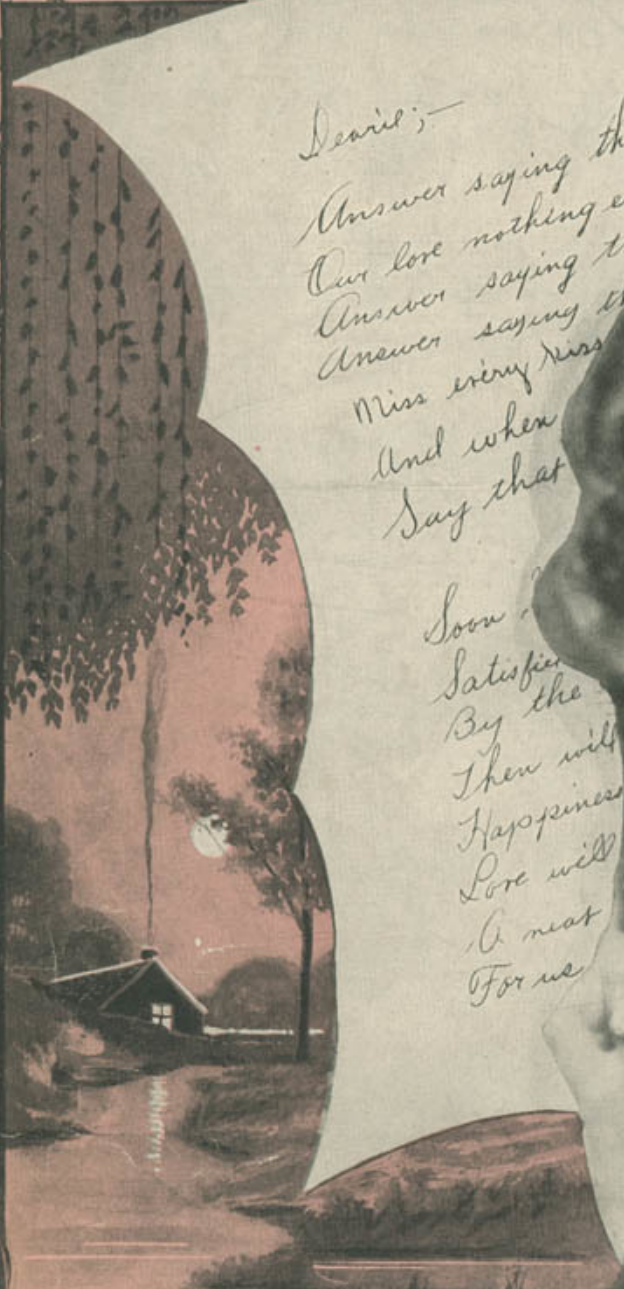 Dearie;—
Answer saying th
Our love nothing e
Answer saying t
Answer saying th
Miss every kiss
And when
Say that
Soon
Satisfie
By the
Then will
Happiness
Love will
A neat
For us